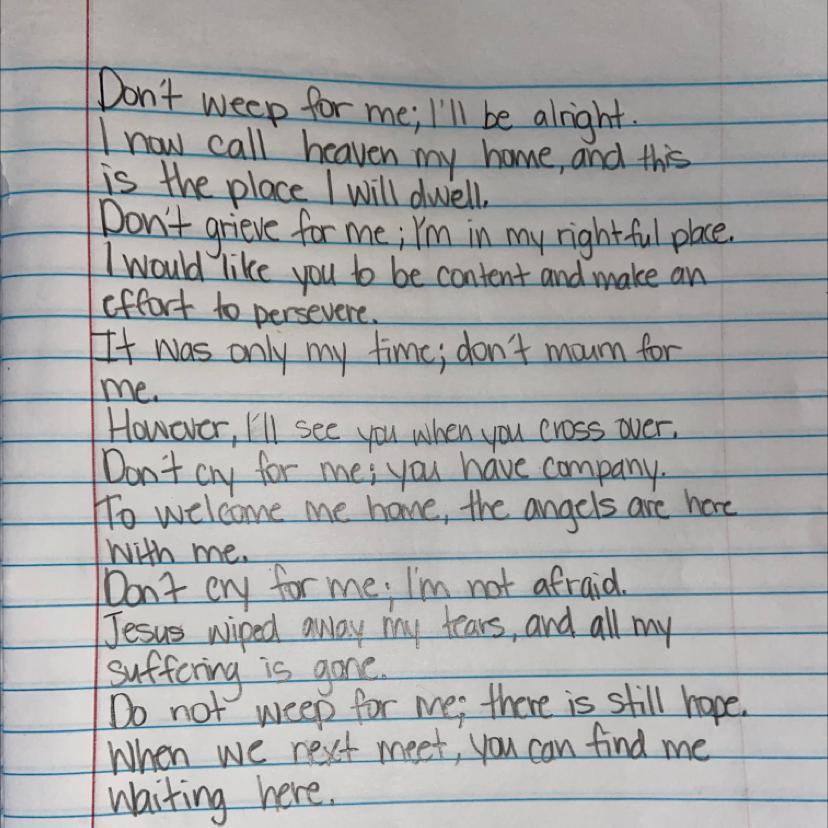 Don't weep for me; I'll be alright.
I now call heaven my home, and this
is the place I will dwell.
Don't grieve for me; I'm in my rightful place.
I would like you to be content and make an
effort to persevere.
It was only my time; don't mourn for
me.
However, I'll see you when you cross over.
Don't cry for me; you have company.
To welcome me home, the angels are here
with me.
Don't cry for me; I'm not afraid.
Jesus wiped away my tears, and all my
suffering is gone.
Do not weep for me; there is still hope.
When we next meet, you can find me
waiting here.